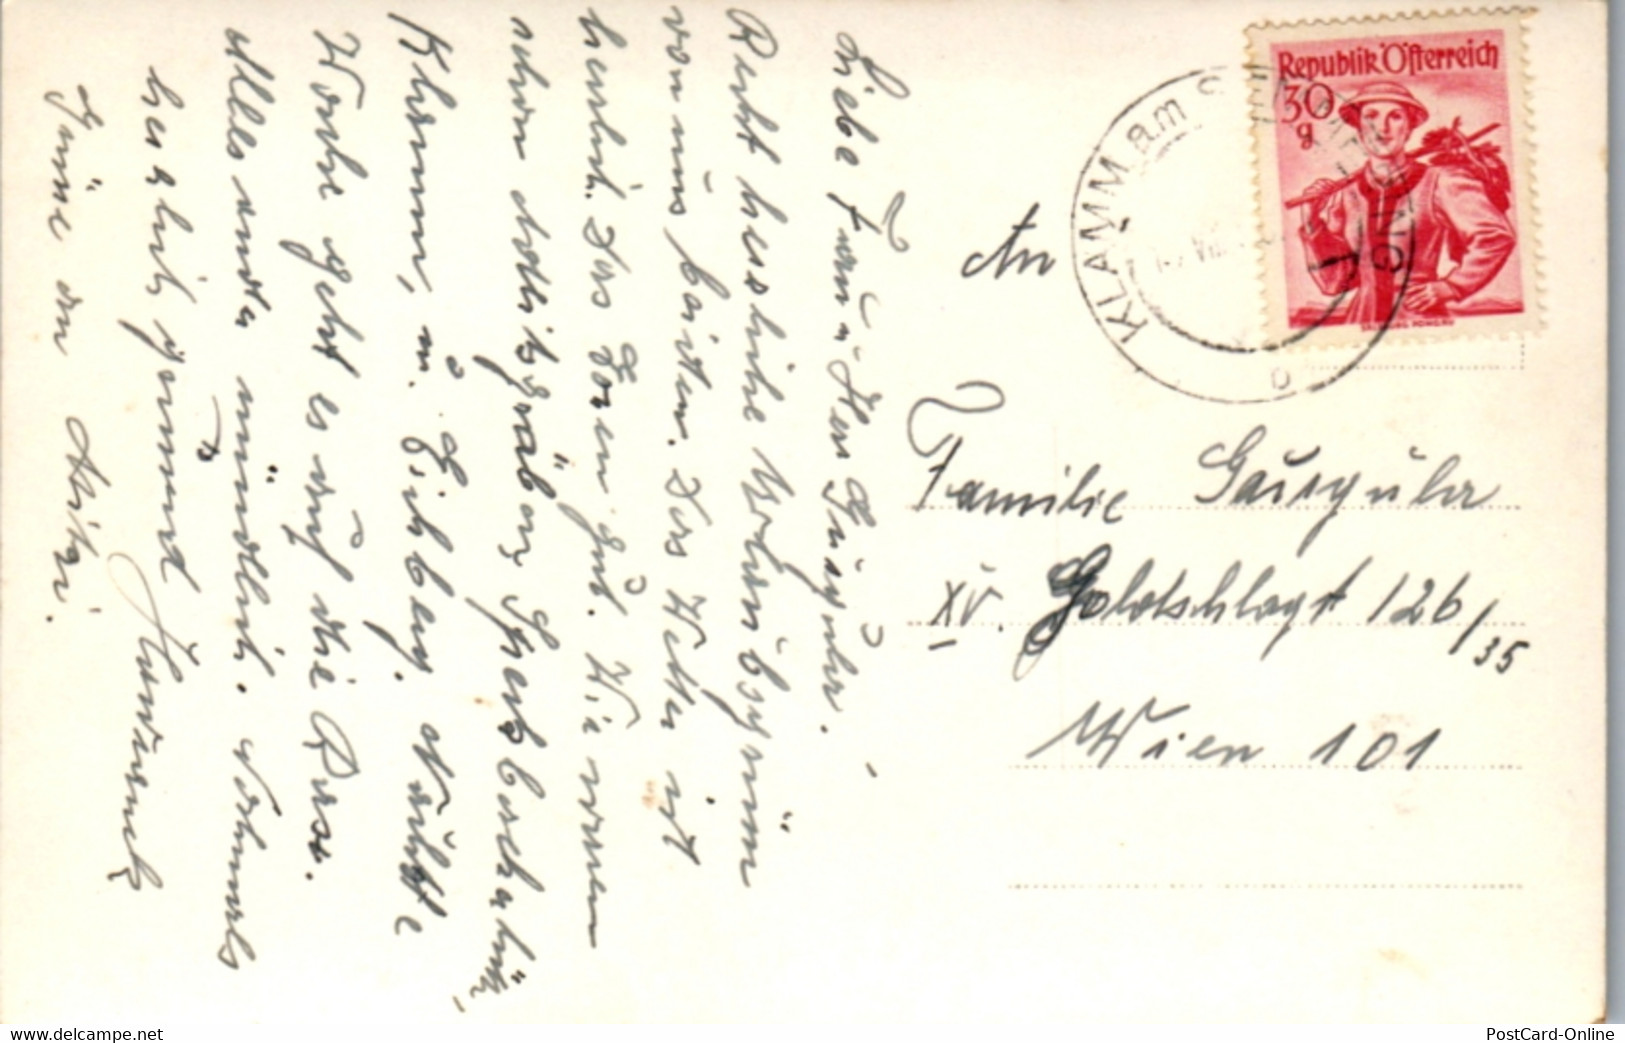 Liebe Frau u. Herr Gausguhr.
Recht herzliche Urlaubsgrüße
von uns beiden. Das Wetter ist
herrlich. Das Essen gut. Wir waren
schon Adlitzgräben, Speckbacherhütte,
Klamm, u. Eichberg. Nächste
Woche geht es auf die Rax.
Alles andere mündlich. Nochmals
herzlich grüßend
Grüße an Mitzi.
An
Familie Gausguhr
XV. Goldschlagst 126/35
Wien 101
Republik Österreich
30
g
KLAMM am SEMMERING
b
delcampe.net
PostCard-Online